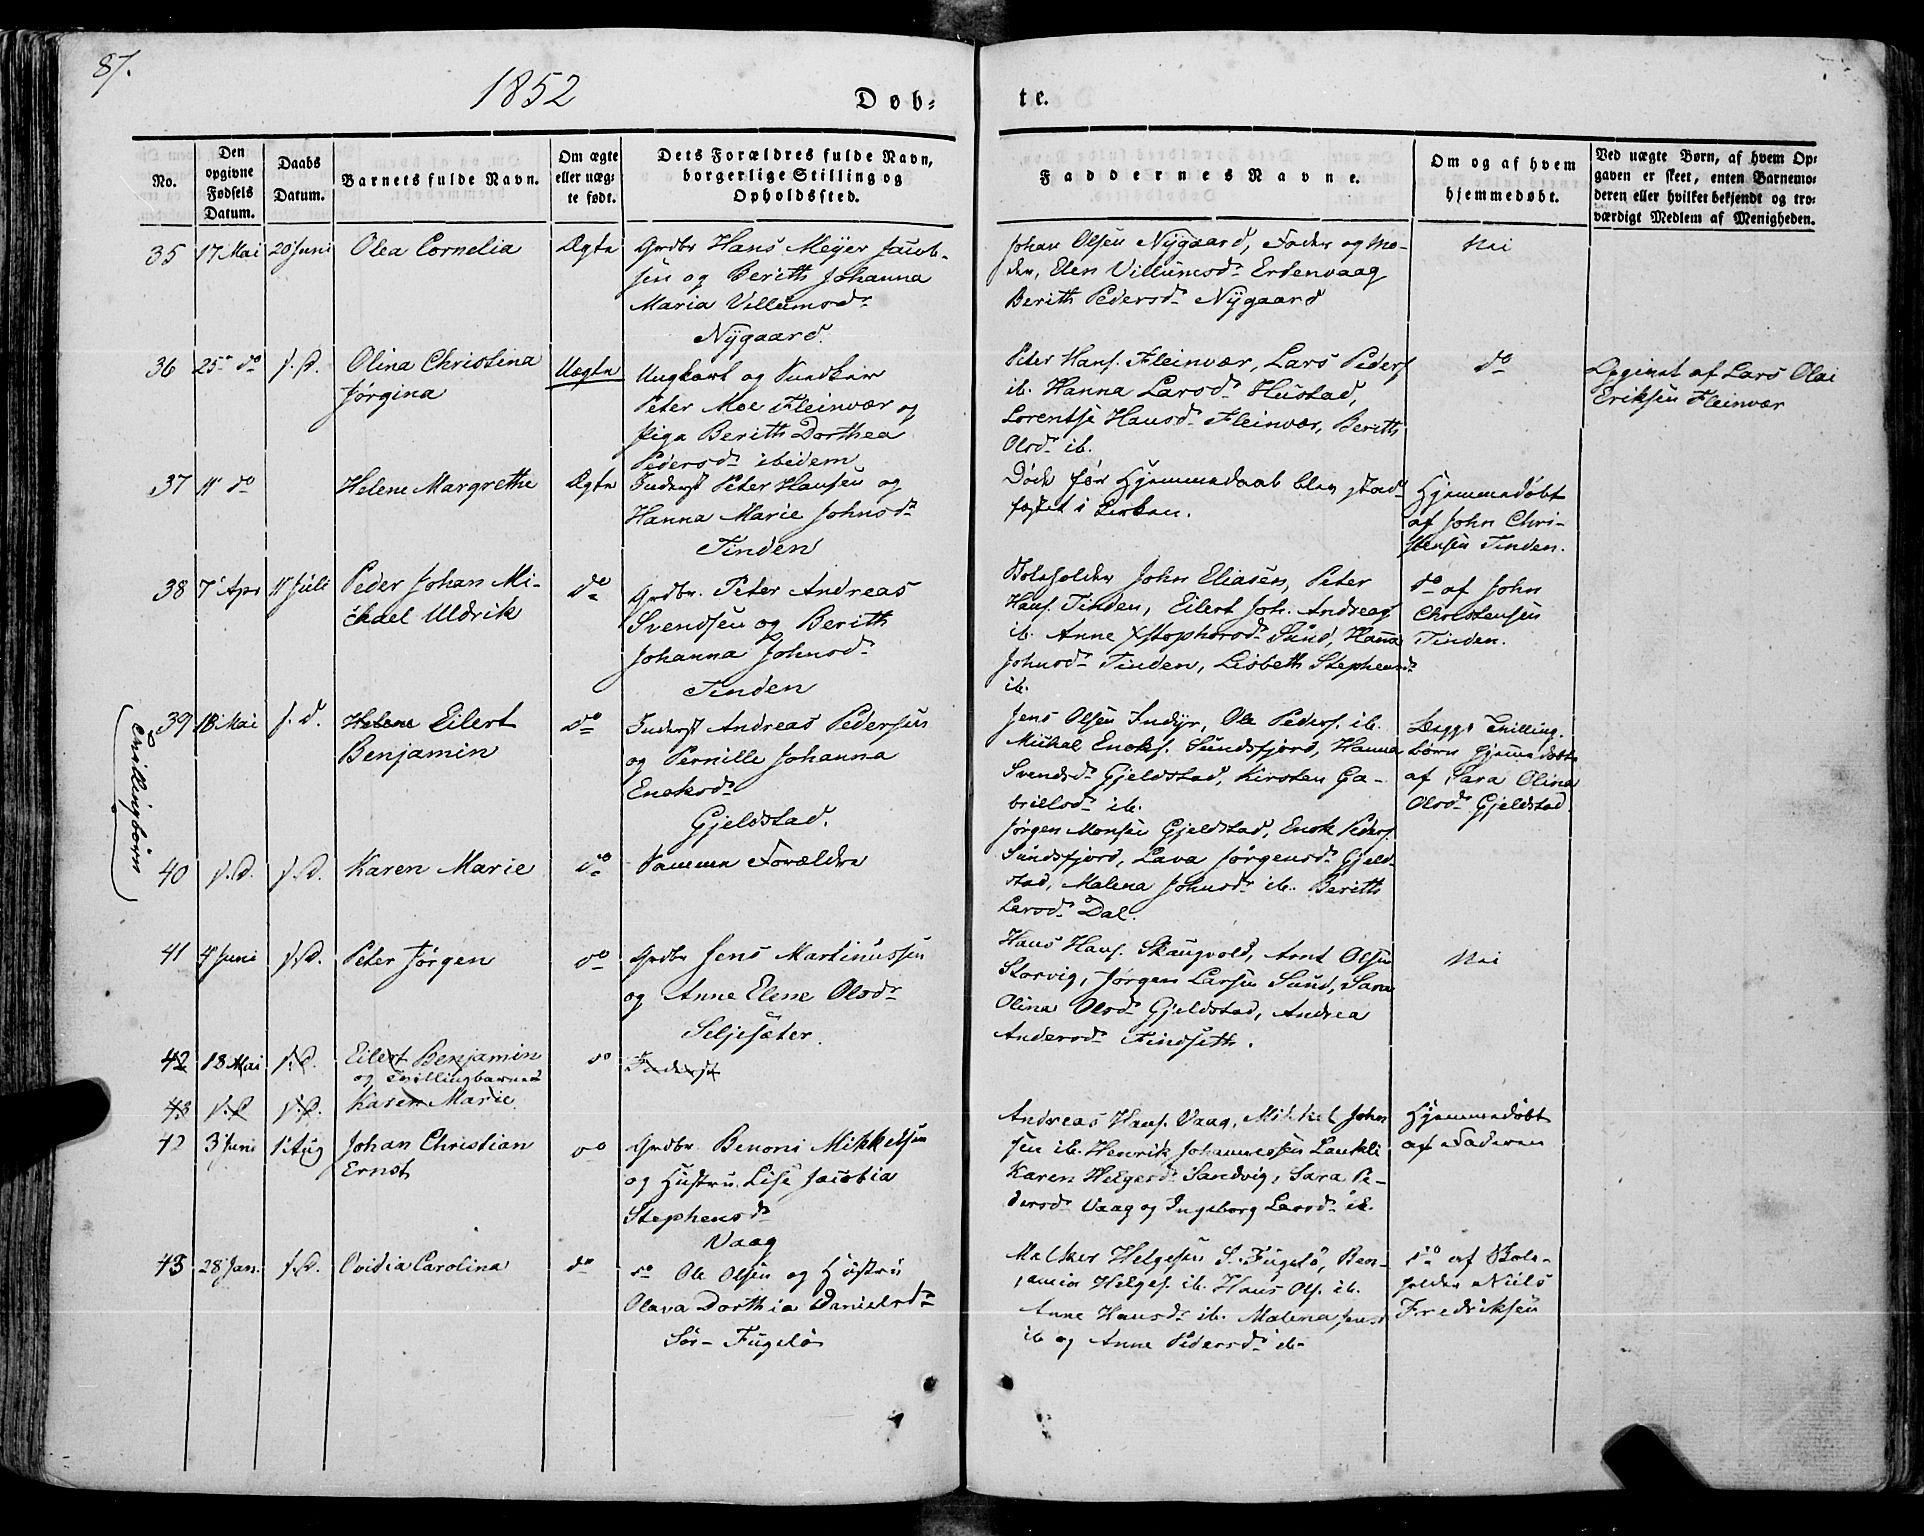 87.
1852
Døb-
te.
No.
Den
opgivne
Fødsels
Datum.
Daabs
Datum.
Barnets fulde Navn.
Om ægte
eller uæg-
te født.
Dets Forældres fulde Navn,
borgerlige Stilling og
Opholdssted.
Faddernes Navne.
Om og af hvem
hjemmedøbt.
Ved uægte Børn, af hvem Op-
gaven er skeet, enten Barnemo-
deren eller hvilket bekjendt og tro-
værdigt Medlem af Menigheden.
35 17 Mai 20 Juni Olea Cornelia Ægte Grdbr Hans Meÿer Jacob-
sen og Berith Johanna
Maria Villumsdr
Nÿgaard.
Johan Olsen Nÿgaard, Fader og Mo-
der, Elen Villumsdr
Berith Pedersdr Nÿgaard
Nei
36 25 do s. d. Olina Christina
Jørgina
Uægte
Ungkarl og
Peter Moe Fleinvær og
Pige Berith Dorthea
Pedersdr ibidem
Peter Hans. Fleinvær, Lars Peders.
ib. Hanna Larsdr Hustad,
Lorentse Hansdr Fleinvær, Berith
Olsdr ib.
do
Opgivet af Lars Olai
Eriksen Fleinvær
37 11 do Helene Margrethe Ægte Inderst Peter Hansen og
Hanna Marie Johnsdr
Tinden
Døde før Hjemmedaab blev stad-
fæstet i Kirken.
Hjemmedøbt
af John Chri-
stensen Tinden.
38 7 Apr 11 Juli Peder Johan Mi-
chael Uldrik
do
Grdbr. Peter Andreas
Svendsen og Berith
Johanna Johnsdr
Tinden
John Eliasen, Peter
Hans. Tinden, Eilert Joh. Andreas
ib. Anne Xstophersdr Sund, Hanna
Johnsdr Tinden, Lisbeth Stephensdr
ib.
do af John
Christensen
Tinden.
Tvillingbørn
39 18 Mai s. d. Helene Eilert
Benjamin
do
Inderst Andreas Pedersen
og Pernille Johanna
Enoksdr
Gjeldstad.
Jens Olsen Indyr, Ole Peders. ib.
Mikal Enoks. Sundsfjord, Hanna
Svendsdr Gjeldstad, Kirsten Ga-
brielsdr ib.
Begge Tvilling-
børn Hjemmedøbt
af Sara Olina
Olsdr Gjeldstad.
40 s. d. s. d. Karen Marie do Samme Forældre
Jørgen Monsen Gjeldstad, Enok Peders.
Sundsfjord, Lava Jørgensdr Gjeld-
stad, Malena Johnsdr ib. Berith
Larsdr Dal.
41 4 Juni s. d. Peter Jørgen do Grdbr Jens Martinussen
og Anne Elene Olsdr
Seljesæter.
Hans Hans. Skaugvold, Arnt Olsen
Storvig, Jørgen Larsen Sund, Sara
Olina Olsdr Gjeldstad, Andrea
Andersdr Findseth.
Nei
42 18 Mai s. d. Eilert Benjamin do Inderst
og Tvillingbarnet
43 s. d. s. d. Karen Marie.
42 3 Juni 1 Aug Johan Christian
Ernst
do
Grdbr. Benoni Mikkelsen
og Hustru Lise Jacobia
Stephensdr
Vaag
Andreas Hans. Vaag, Mikkel John
sen ib. Henrik Johannessen
Karen Helgesdr Sandvig, Sara Pe-
dersdr Vaag og Ingeborg Larsdr ib.
Hjemmedøbt
af Faderen
43 28 Jan. s. d. Ovidia Carolina do do Ole Olsen og Hustru
Olava Dorthia Danielsdr
Sør-Fugelø
Helgesen S. Fugelø, Ben-
jamin Helges. ib. Hans Ols. ib.
Anne Hansdr ib. Malena Jensd
ib og Anne Pedersdr ib-
do af Bols-
holder Niels
Fredriksen